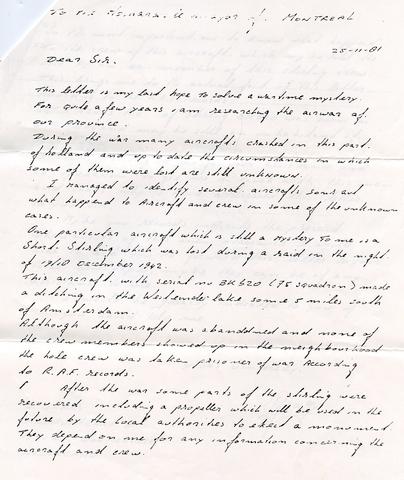 To His Honour, the mayor of. MONTREAL
25-11-81
Dear Sir.
This letter is my last hope to solve a wartime mystery.
For quite a few years i am researching the airwar of
our province.
During the war many aircrafts crashed in this part
of holland and up to date the circumstances in which
some of them were lost are still unknown.
I managed to identify several aircrafts and
what happend to aircraft and crew in some of the unknown
cases.
One particular aircraft which is still a mystery to me is a
Short. Stirling which was lost during a raid in the night
of 17/18 December 1942.
This aircraft. with serial no BK620 (75 squadron) made
a ditching in the Westeinder lake some 5 miles south
of Amsterdam.
Although the aircraft was abandoned and none of
the crew members showed up in the neighbourhood
the hole crew was taken prisoner of war According
to R.A.F. records.
After the war some parts of the stirling were
recovered including a propeller which will be used in the
future by the local authorities to erect a monument
They depend on me for any information concerning the
aircraft and crew.